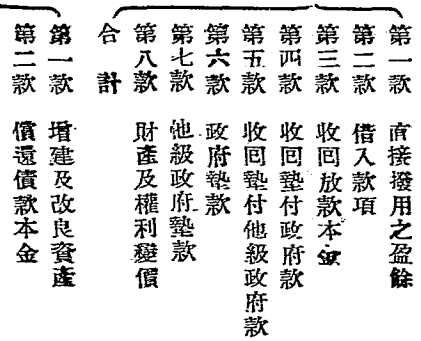 第一款 直接撥用之盈餘
第二款 借入款項
第三款 收回放款本金
第四款 收回墊付政府款
第五款 收回墊付他級政府款
第六款 政府墊款
第七款 他級政府墊款
第八款 財產及權利變價
合計
第一款 增建及改良資產
第二款 償還債款本金